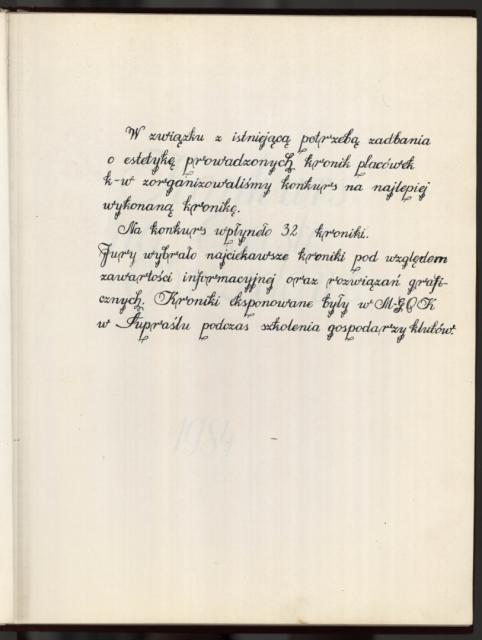 W związku z istniejącą potrzebą zadbania
o estetykę prowadzonych kronik placówek
k-w zorganizowaliśmy konkurs na najlepiej
wykonaną kronikę.
Na konkurs wpłynęło 32 kroniki.
Jury wybrało najciekawsze kroniki pod względem
zawartości informacyjnej oraz rozwiązań grafi-
cznych. Kroniki eksponowane były w M-GOK
w Supraślu podczas szkolenia gospodarzy klubów.
1984